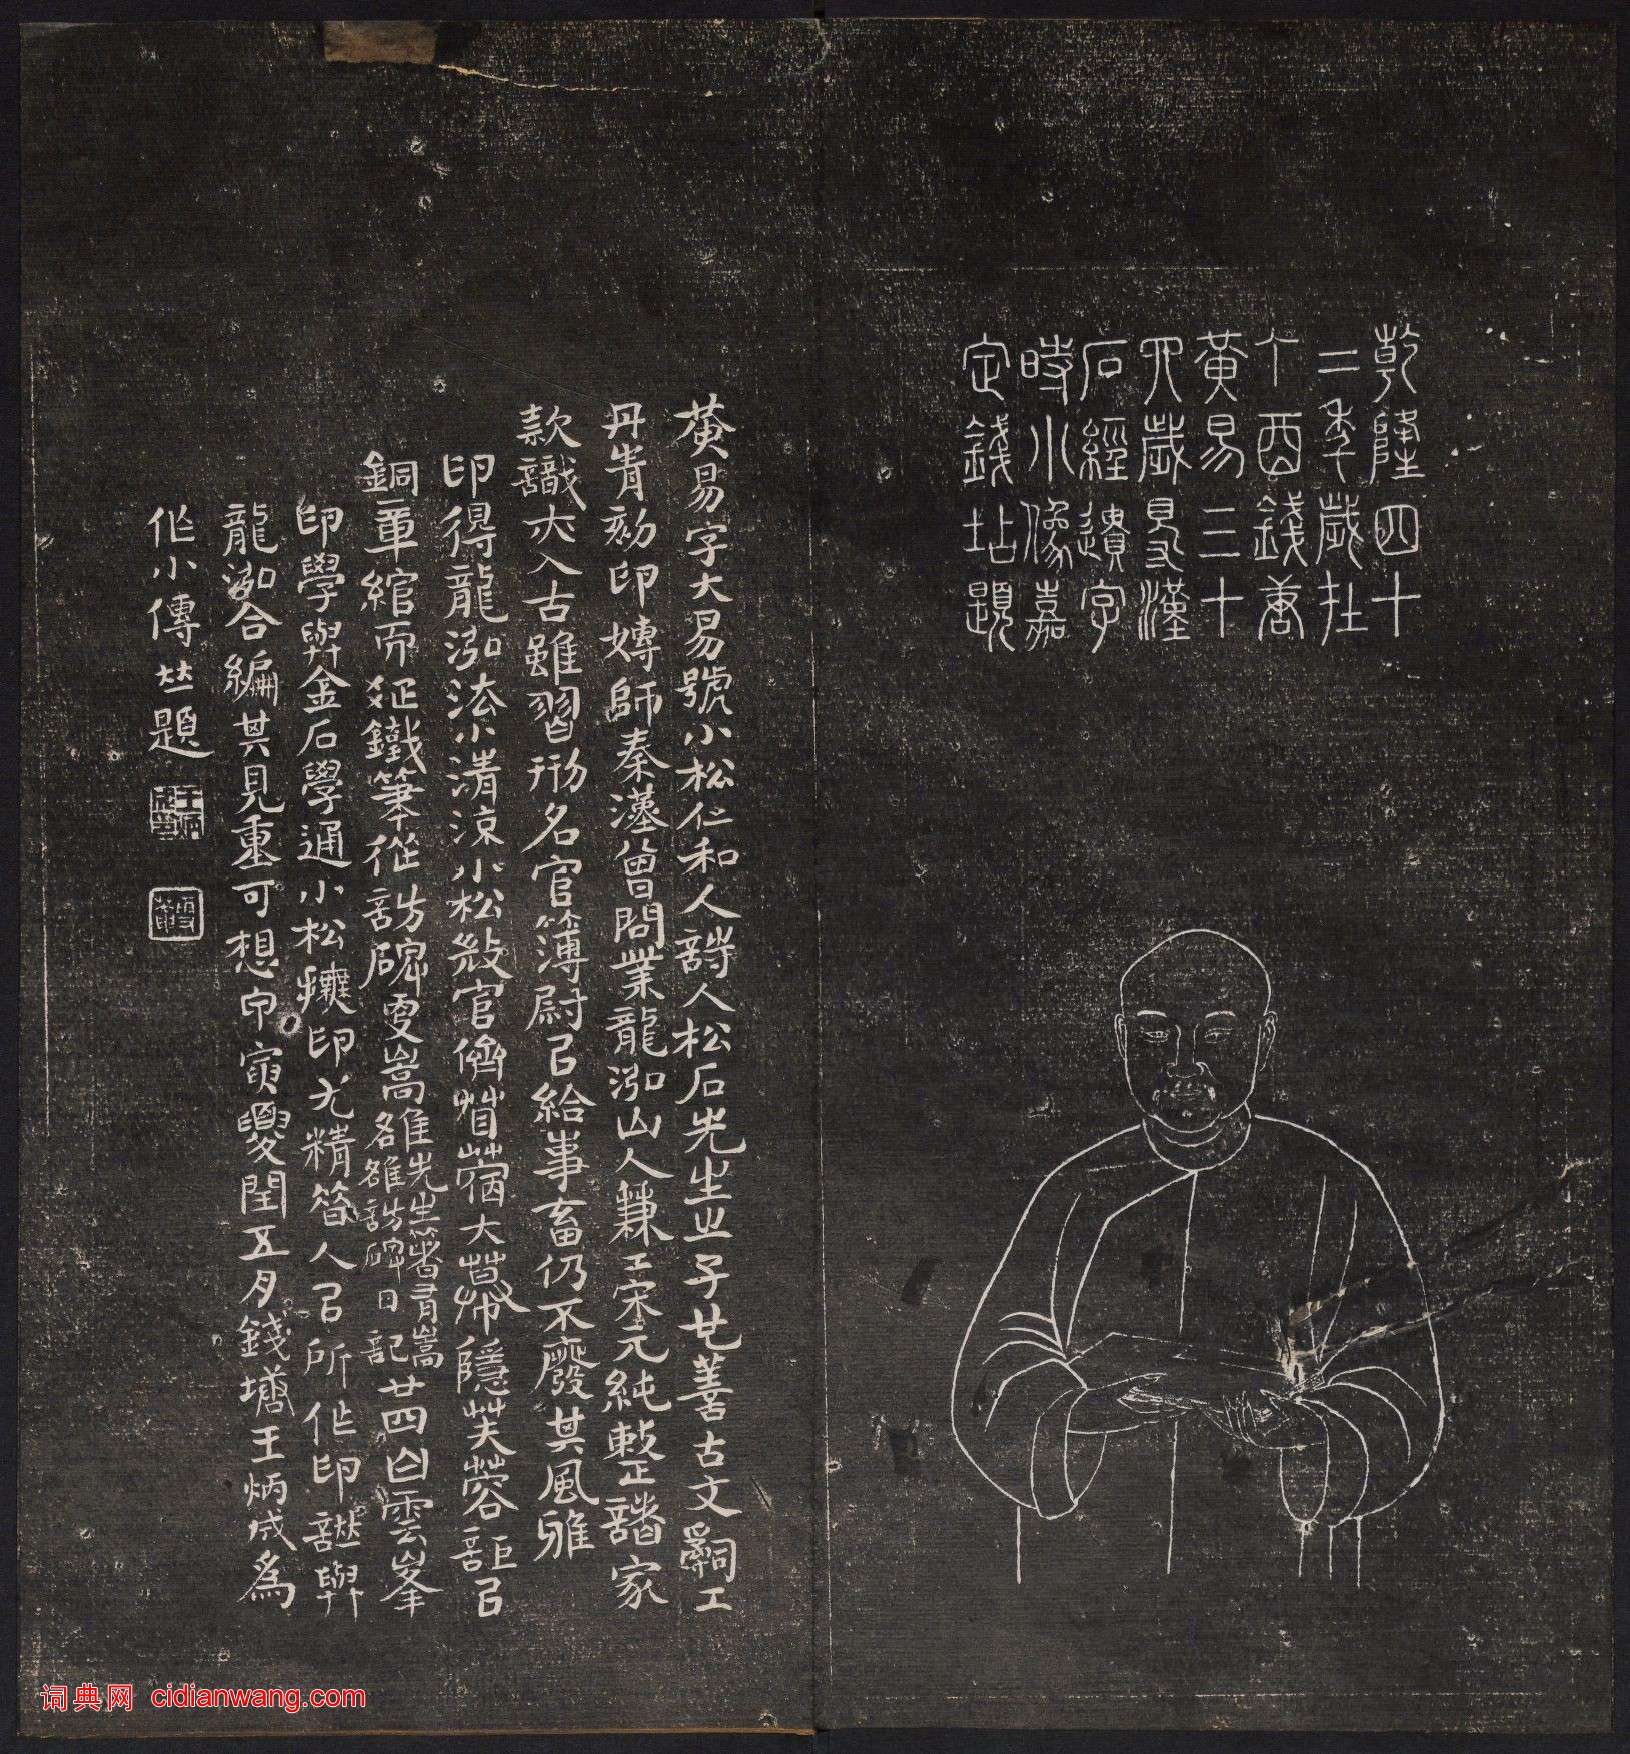 乾隆四十
二季歲在
丁酉錢唐
黃易三十
四歲見漢
石經遺字
時小像嘉
定錢坫題
黃易字大易號小松仁和人詩人松石先生之子也善古文詞工
丹青刻印嫥師秦漢曾問業龍泓山人兼工宋元純整諸家
款識夾入古雖習刑名官簿尉吕給事畜仍不廢其風雅
印得龍泓法小清涼小松殺官
隱芙蓉詎吕
銅章綰而
鐵筆從訪碑
嵩雒先生箸有嵩雒訪碑日記廿四
雲峯
印學與金石學通小松
印尤精簪人吕所作印譜與
龍泓合編其見重可想甲寅夏閏五月錢塘王炳成為
作小傳
題
词典网 cidianwang.com